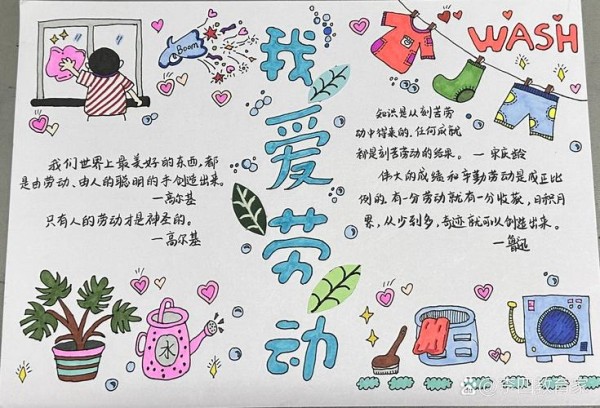 Boom
我爱劳动
WASH
我们世界上最美好的东西,都
是由劳动、由人的聪明的手创造出来。
—高尔基
只有人的劳动才是神圣的。
—高尔基
知识是从刻苦劳
动中得来的,任何成就
都是刻苦劳动的结果。—宋庆龄
伟大的成绩和辛勤劳动是成正比
例的,有一分劳动就有一分收获,日积月
累,从少到多,奇迹就可以创造出来。
—鲁迅
水